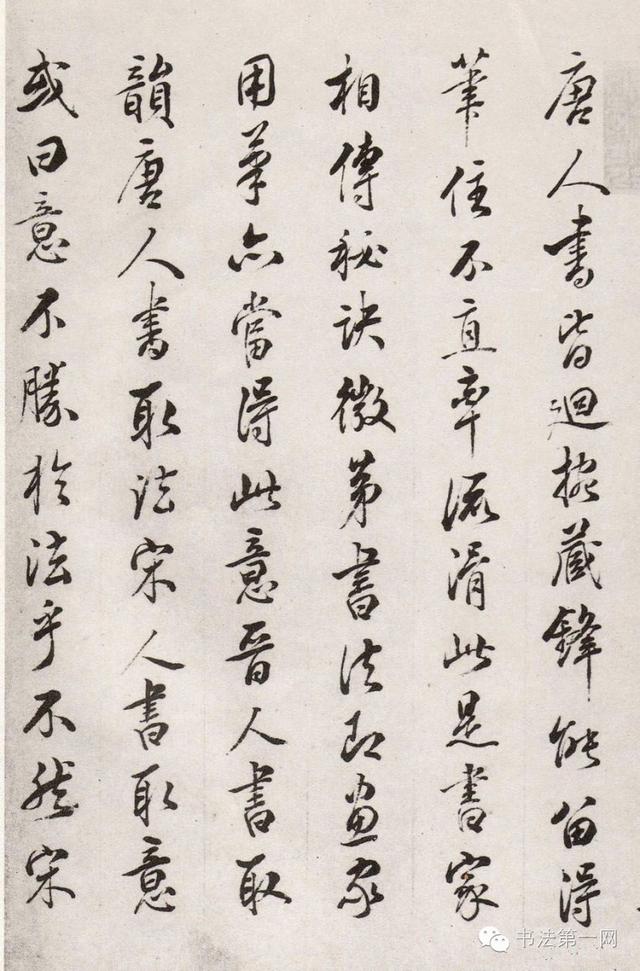 唐人書皆迴腕藏鋒能留得
筆住不直率流滑此是書家
相傳秘訣微第書法即畫家
用筆亦當得此意晉人書取
韻唐人書取法宋人書取意
或曰意不勝於法乎不然宋
书法第一网